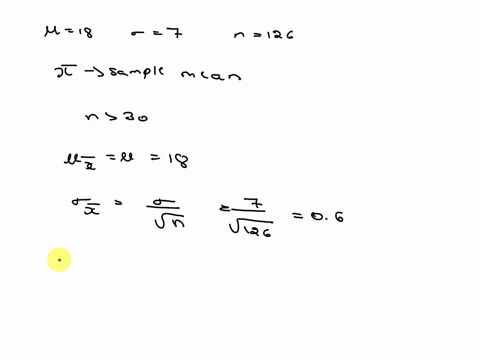 μ = 18 σ = 7 n = 126
x̄ → sample mean
n > 30
μx̄ = μ = 18
σx̄ = σ/√n = 7/√126 = 0.6